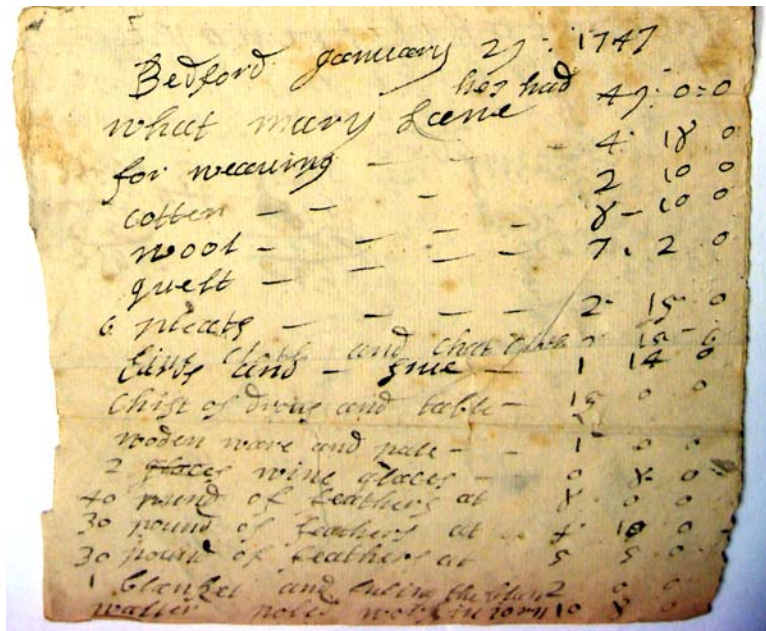 Bedford January 29: 1747
what mary Lane has had 49: 0=0
for weaving - - - 4: 18 0
cotten - - - 2 10 0
wool - - - - 8 - 10 0
quelt - - - - 7. 2 0
6 pleats - - - - 2 15 0
cloth and 15
and - - 1 14 0
Chist of drous and table - 15 0 0
woden ware and pale - - 1 0 0
2 glaces wine glaces - 0 8 0
40 pound of feathers at 8 0 0
30 pound of feathers at 4 10 0
30 pound of feathers at 5 5 0
1 blanket and 2 0 0
walter 10 8 0